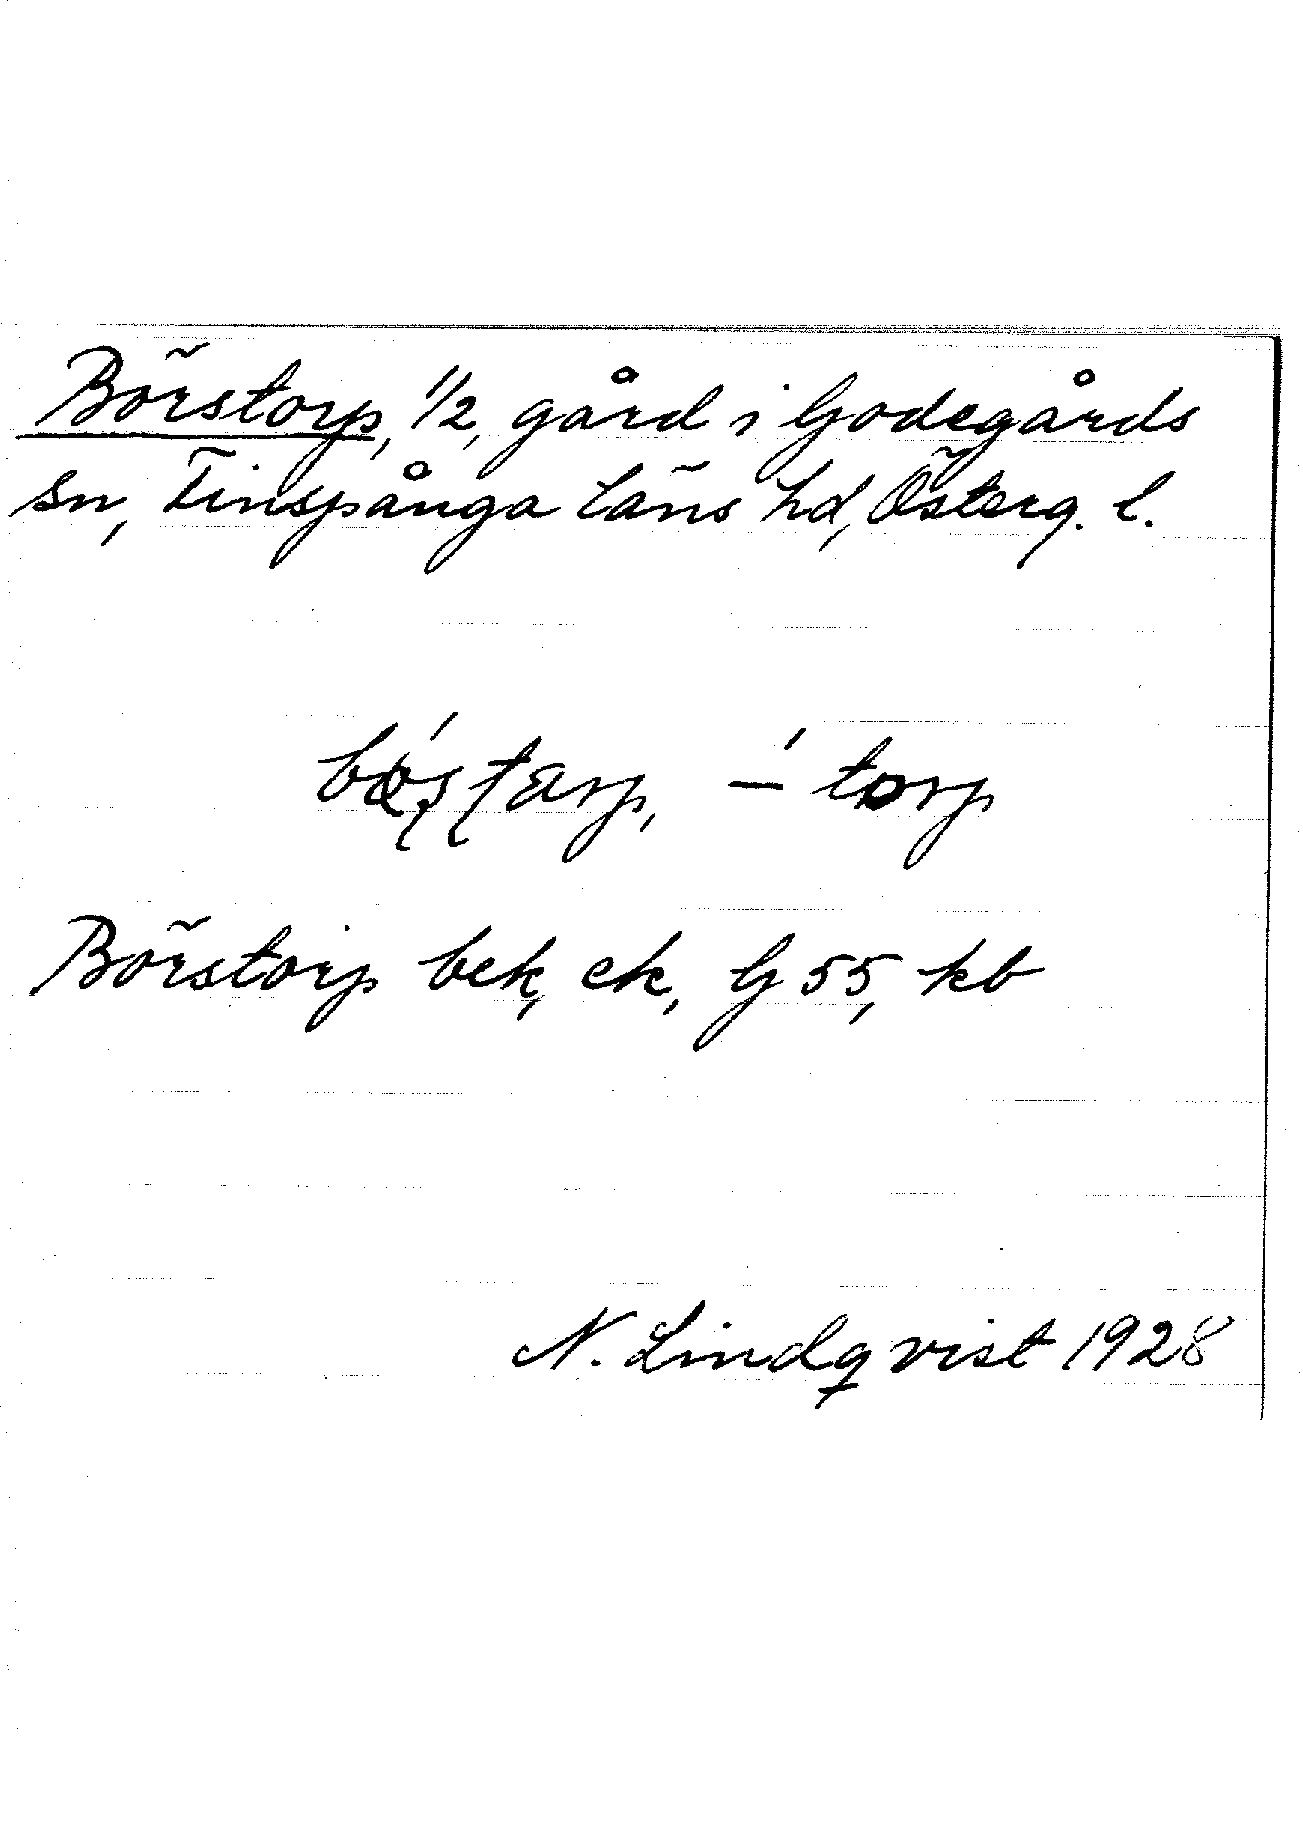 Börstorp, 1/2, gård i Godegårds
sn, Finspånga läns hd, Österg. l.
–́ torp
Börstorp bek, ek, G 55, kb
N. Lindqvist 1928